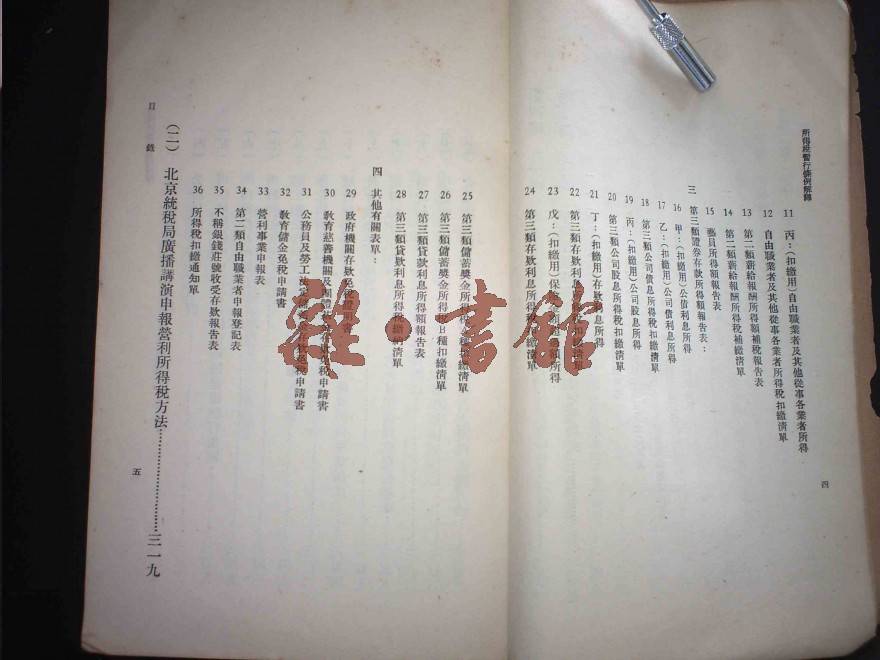 所得稅暫行條例解釋
11 丙：（扣繳用）自由職業者及其他從事各業者所得
12 自由職業者及其他從事各業者所得稅扣繳清單
13 第二類薪給報酬所得額補稅報告表
14 第二類薪給報酬所得稅補繳清單
15 職員所得額報告表
三 第三類證券存款所得額報告表：
16 甲：（扣繳用）公債利息所得
17 乙：（扣繳用）公司債利息所得
18 第三類公司債息所得稅扣繳清單
19 丙：（扣繳用）公司股息所得
20 第三類公司股息所得稅扣繳清單
21 丁：（扣繳用）存款利息所得
22 第三類存款利息所得
23 戊：（扣繳用）保
所得
24 第三類存款利息所得
扣繳清單
四
25 第三類儲蓄獎金所得
種扣繳清單
26 第三類儲蓄獎金所得
B種扣繳清單
27 第三類貸款利息所得額報告表
28 第三類貸款利息所得稅
清單
四 其他有關表單：
29 政府機關存款免
書
30 教育慈善機關及團體
稅申請書
31 公務員及勞工法定
稅申請書
32 教育儲金免稅申請書
33 營利事業申報表
34 第二類自由職業者申報登記表
35 不稱銀錢莊號收受存款報告表
36 所得稅扣繳通知單
（二） 北京統稅局廣播講演申報營利所得稅方法……三一九
目錄
五
雜·書館